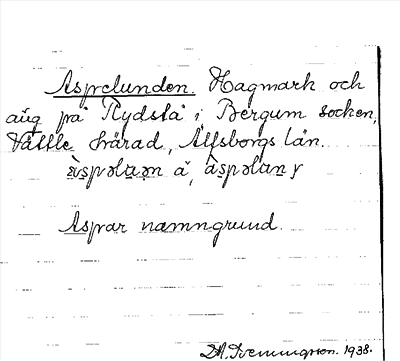 Aspelunden. Hagmark och
äng på Rydslå i Bergum socken,
Vättle härad, Älfsborgs län.
àspələn å, àspəlan y
Aspar namngrund.
Sveningsson. 1938.